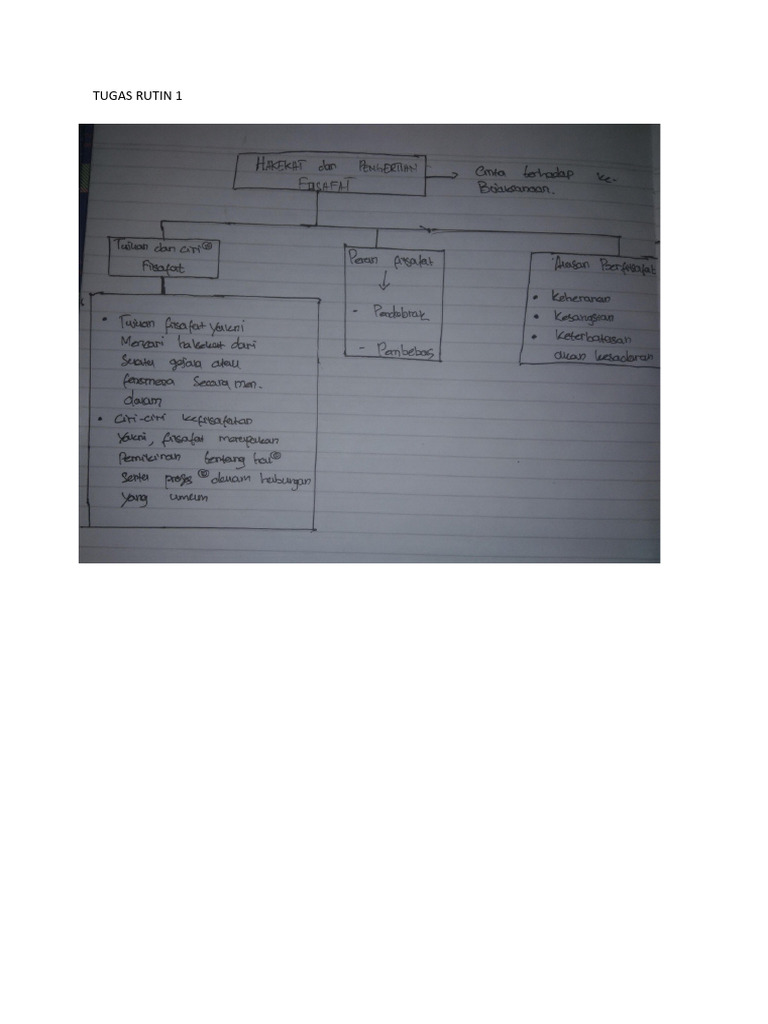 TUGAS RUTIN 1
HAKEKAT dan PENGERTIAN
FILSAFAT
Cinta terhadap ke-
Bijaksanaan.
Tujuan dan ciri②
Filsafat
• Tujuan filsafat yakni
Mencari hakekat dari
Suatu gejala atau
fenomena secara men-
dalam
• Ciri-ciri kefilsafatan
yakni, filsafat merupakan
Pemikiran tentang hal②
Serta proses② dalam hubungan
yang umum
Peran filsafat
- Pendobrak
- Pembebas
Alasan Berfilsafat
• Keheranan
• Kesangsian
• Keterbatasan
akan kesadaran